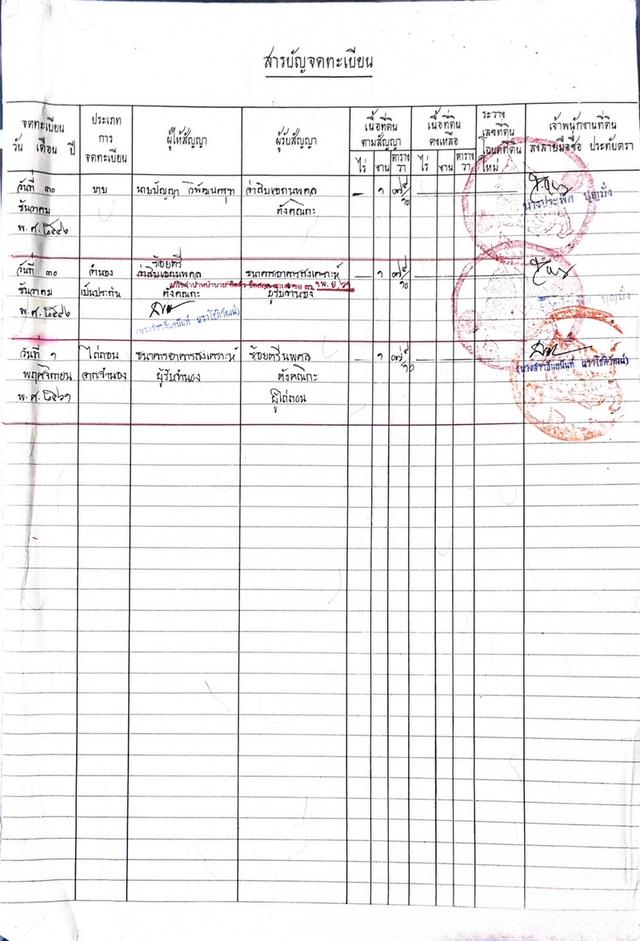 สารบัญจดทะเบียน
จดทะเบียน
วัน เดือน ปี
ประเภท
การ
จดทะเบียน
ผู้ให้สัญญา
ผู้รับสัญญา
เนื้อที่ดิน
ตามสัญญา
ไร่ งาน ตาราง
วา
เนื้อที่ดิน
คงเหลือ
ไร่ งาน ตาราง
วา
ระวาง
เลขที่ดิน
โฉนดที่ดิน
ใหม่
เจ้าพนักงานที่ดิน
ลงลายมือชื่อ ประทับตรา
วันที่ ๓๐
ธันวาคม
พ.ศ. ๒๕๔๖
ขาย
นายปัญญา
ว่าสิบเอกนพดล
ดังคณิกะ
— ๑
— — —
นางประพิศ บุญมั่ง
วันที่ ๓๐
ธันวาคม
พ.ศ. ๒๕๔๖
จำนอง
เป็นประกัน
ร้อยตรี
ว่าสิบเอกนพดล
ดังคณิกะ
ธนาคารอาคารสงเคราะห์
ผู้รับจำนอง
— ๑
— — —
บุญมั่ง
วันที่ ๑
พฤศจิกายน
พ.ศ. ๒๕๖๑
ไถ่ถอน
จากจำนอง
ธนาคารอาคารสงเคราะห์
ผู้รับจำนอง
ร้อยตรีนพดล
ดังคณิกะ
ผู้ไถ่ถอน
— ๑
— — —